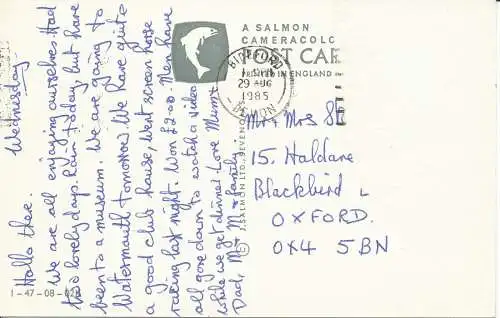 Wednesday
Hallo there.
We are all enjoying ourselves. Had
two lovely days. Rain today, but have
been to a museum. We are going to
Watermouth tomorrow. We have quite
a good club house, Went screen horse
racing last night. Won £2-00. Men have
all gone down to watch a video
while we get dinner. Love Mum &
Dad, M & M & family.
1-47-08-02
A SALMON
CAMERACOLO
POST CAR
PRINTED IN ENGLAND
© J. SALMON LTD., SEVENOAKS
BIDEFORD
29 AUG
1985
DEVON
Mr & Mrs
15. Haldane
Blackbird L
OXFORD.
OX4 5BN